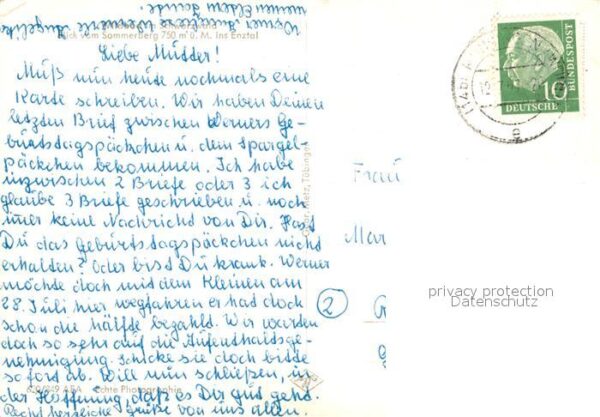 Blick vom Sommerberg 750 m ü. M. ins Enztal
Liebe Mutter!
Muß nun heute nochmals eine
Karte schreiben. Wir haben Deinen
letzten Brief zwischen Werners Ge-
burtstagspäckchen u. dem Spargel-
päckchen bekommen. Ich habe
inzwischen 2 Briefe oder 3 ich
glaube 3 Briefe geschrieben u. noch
immer keine Nachricht von Dir. Hast
Du das Geburtstagspäckchen nicht
erhalten? Oder bist Du krank. Werner
möchte doch mit dem Kleinen am
28. Juli hier wegfahren er hat doch
schon die hälfte bezahlt. Wir warten
doch so sehr auf die Aufenthaltsge-
nehmigung. Schicke sie doch bitte
sofort ab. Will nun schließen, in
der Hoffnung, daß es Dir gut geht.
Recht herzliche Grüße von uns allen.
Echte Photographie
Metz, Tübingen
Frau
Mar
2
10
DEUTSCHE
BUNDESPOST
privacy protection
Datenschutz